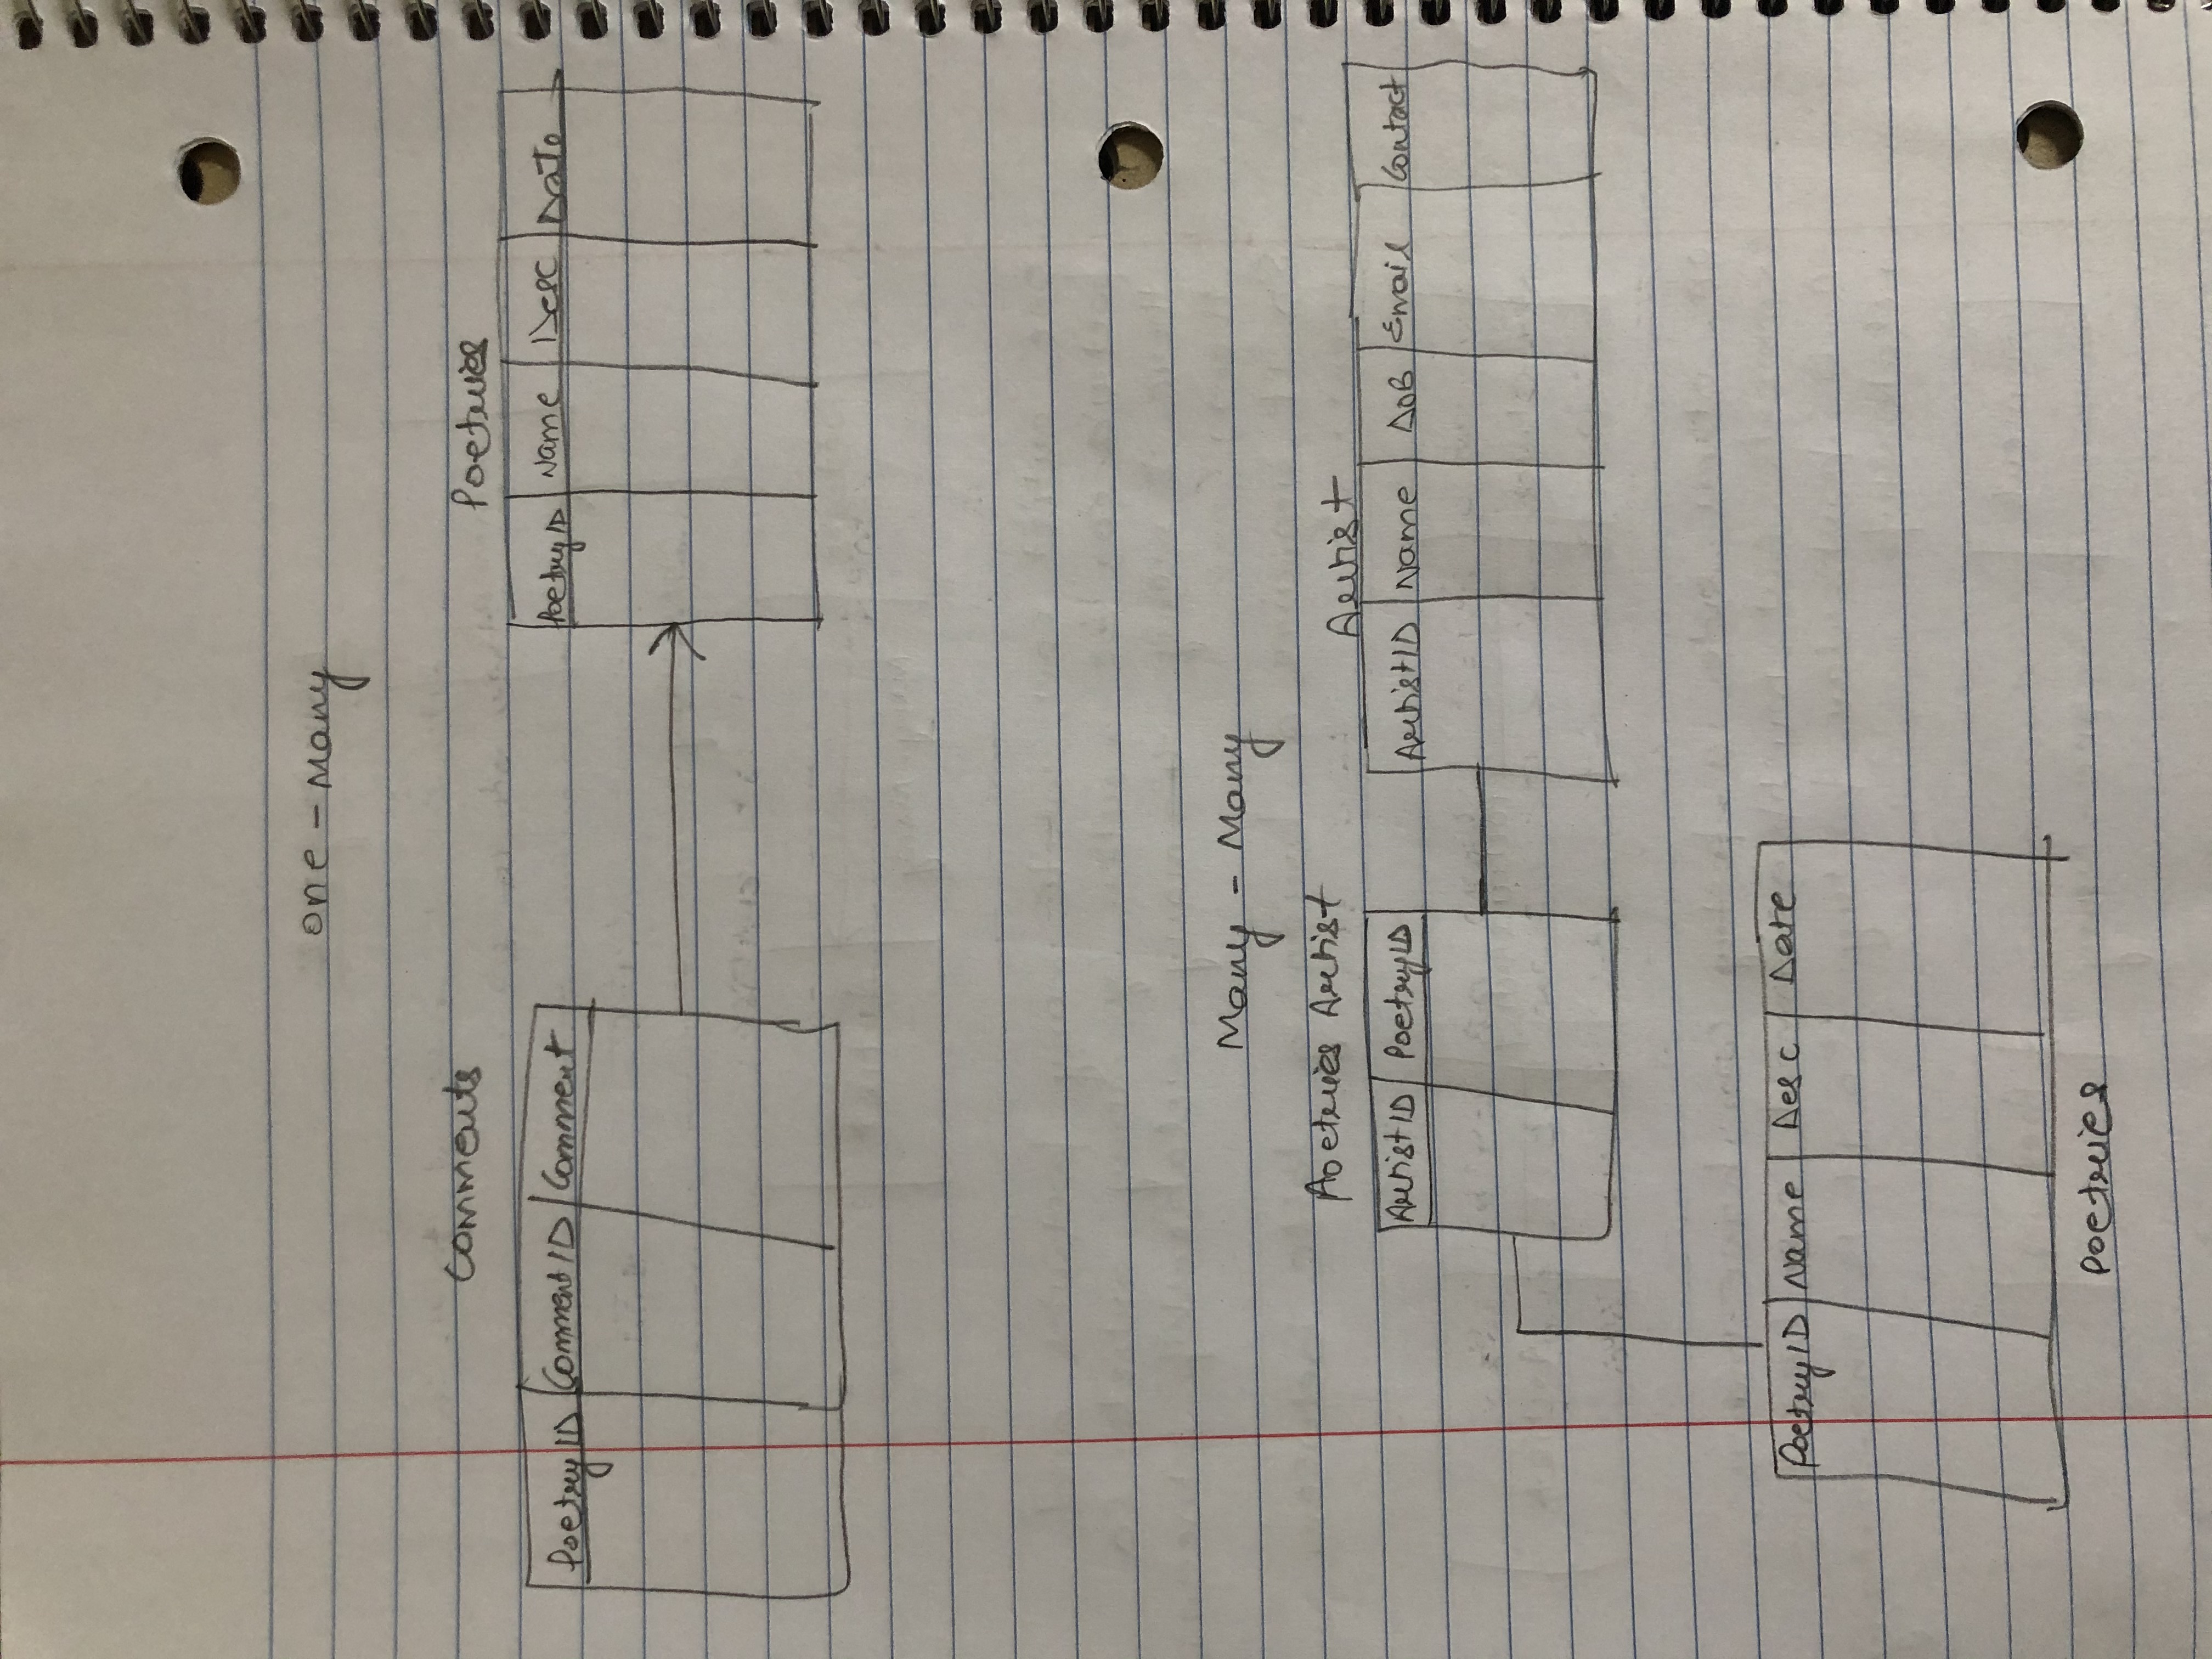 one - Many
Comments
Poetries
PoetryID Comment ID Comment
PoetryID Name Desc Date
Many - Many
Poetries Artist
Artist
ArtistID PoetryID
ArtistID Name DoB Email Contact
PoetryID Name Desc Date
Poetries